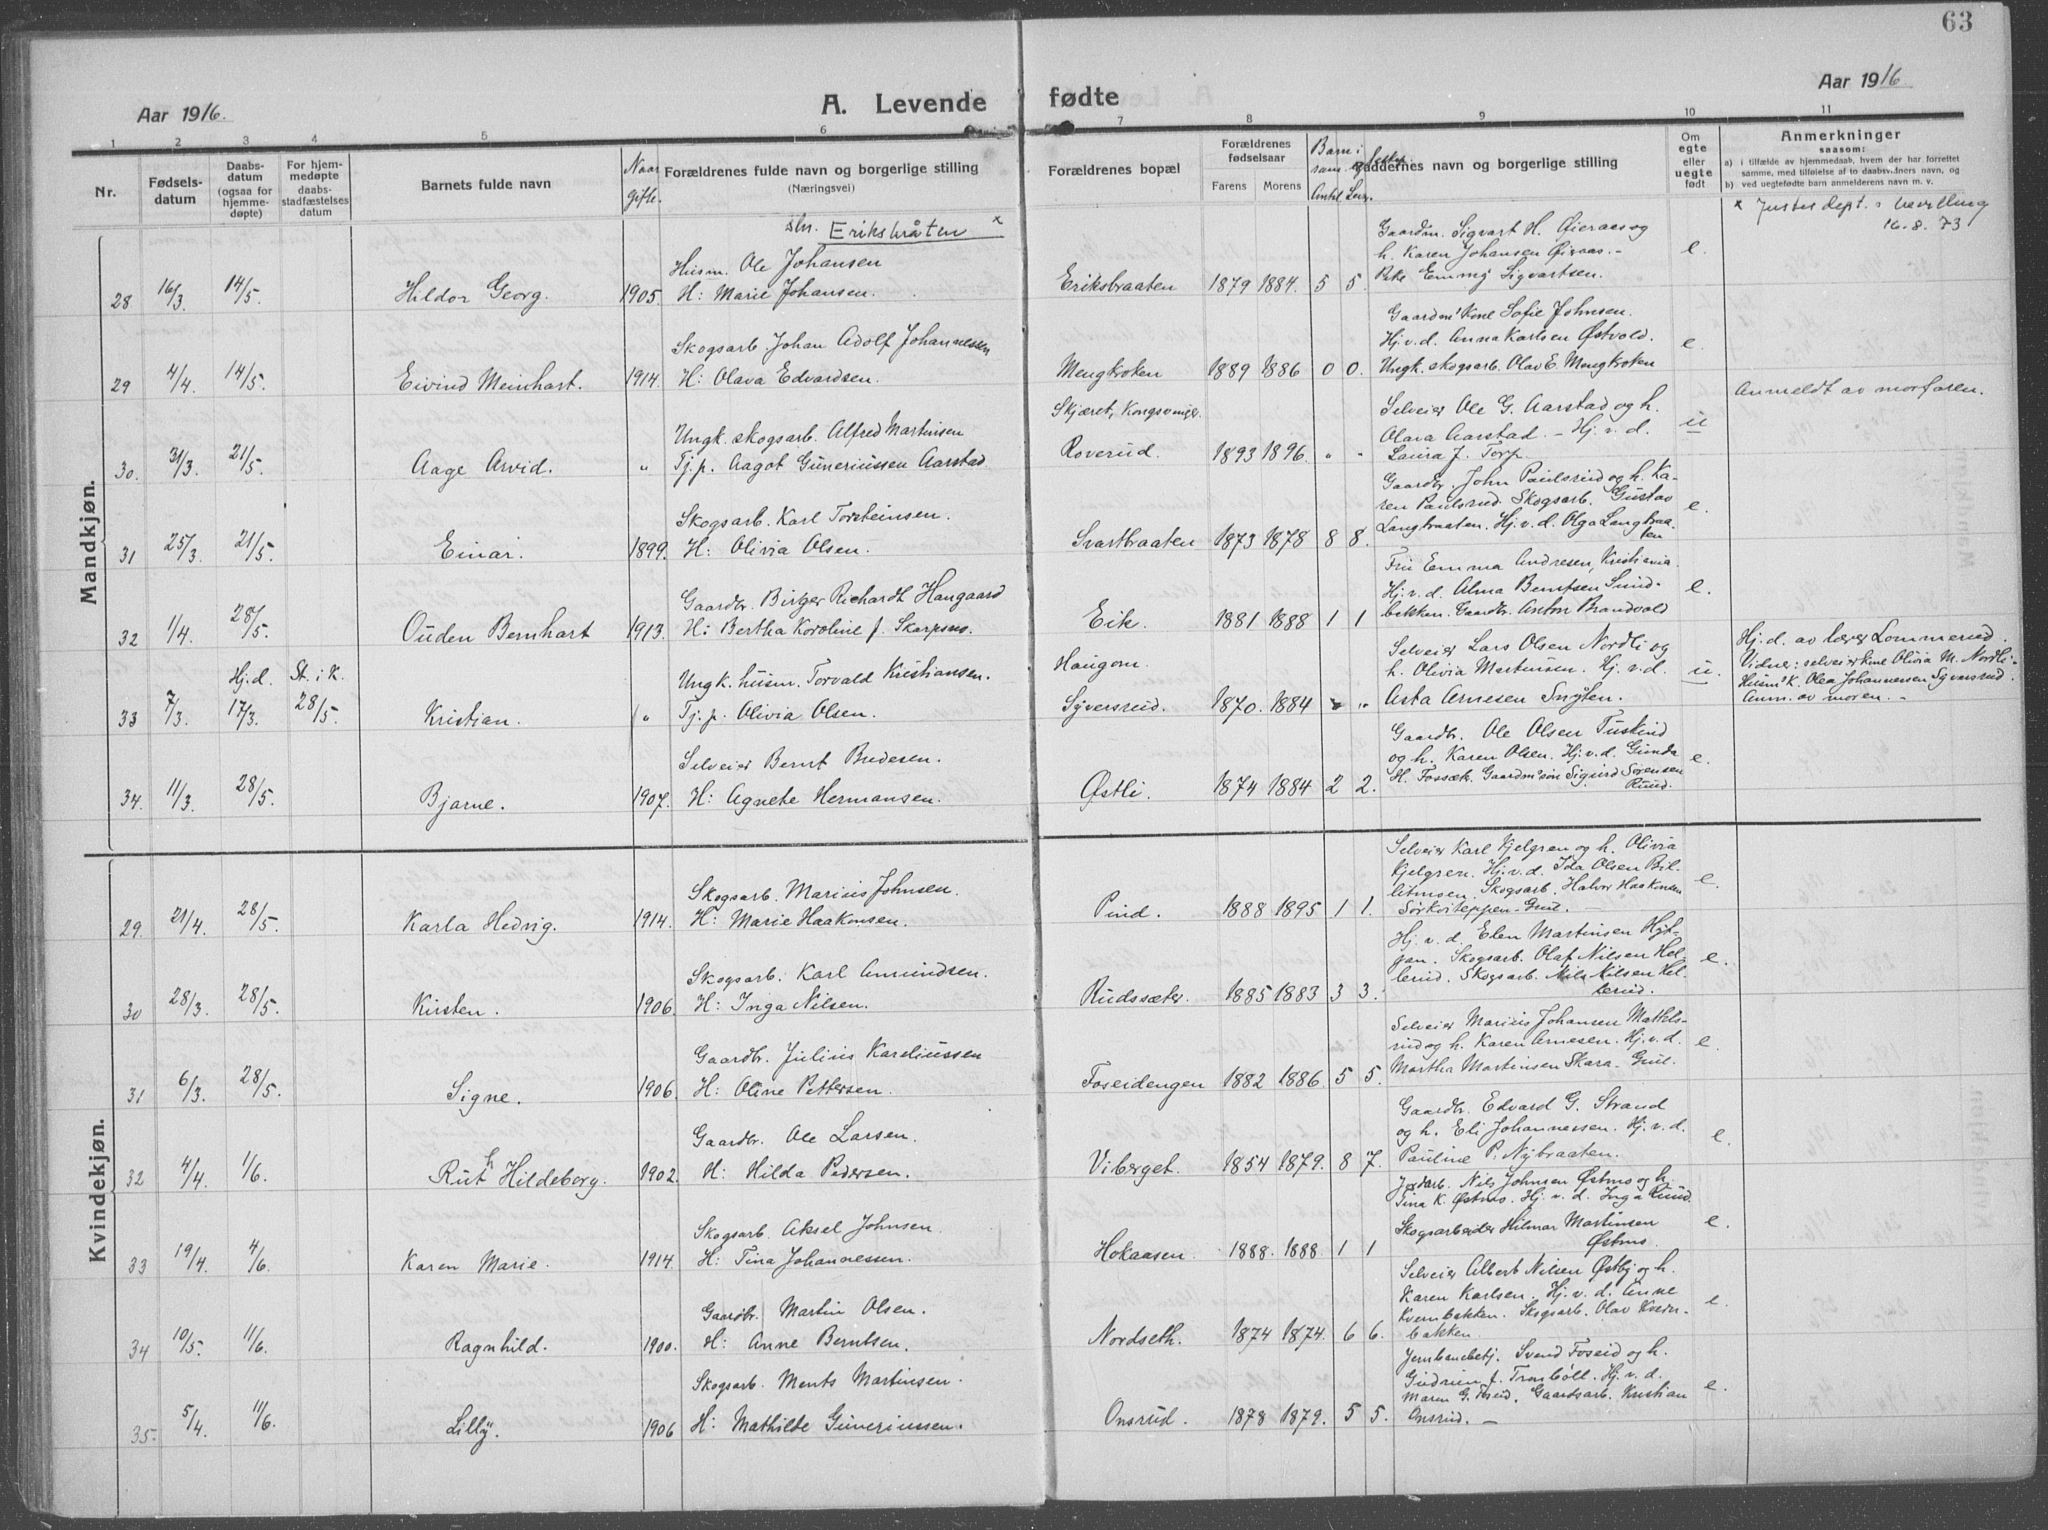 63
Aar 1916.
A. Levende fødte
Aar 1916
1 2 3 4 5 6 7 8 9 10 11
Nr.
Fødselsdatum
Daabsdatum (ogsaa for hjemmedøpte)
For hjemmedøpte daabsstadfæstelses datum
Barnets fulde navn
Naar gifte.
Forældrenes fulde navn og borgerlige stilling
(Næringsvei)
Forældrenes bopæl
Forældrenes fødselsaar
Farens Morens
Barn i
Antal Lev.
Faddernes navn og borgerlige stilling
Om egte eller uegte født
Anmerkninger
saasom:
a) i tilfælde av hjemmedaab, hvem der har forrettet
samme, med tilføielse af to daabsvidners navn, og
b) ved uegtefødte barn anmelderens navn m. v.
Mandkjøn.
sln. Eriksbråten x
x Justisdept.s bevilling
16.8.73
28 16/3 14/5. Hildor Georg. 1905.
Husm. Ole Johansen
H: Marie Johansen.
Eriksbraaten 1879 1884. 5 5.
Gaardm. Sigvart H. Øieraas og
h. Karen Johansen Øieraas.-
Pike Emmy Sigvartsen.
e.
29 4/4. 14/5. Eivind Meinhart. 1914.
Skogsarb. Johan Adolf Johannessen
H: Olava Edvardsen.
Mengkroken 1889 1886 0 0.
Gaardm's Kone Sofie Johnsen.
Hj.v.d. Anna Karlsen Østvold.
Ungk. skogsarb. Olav E. Mengkroken
e.
30. 31/3. 21/5. Aage Arvid. "
Ungk. skogsarb. Alfred Martinsen
Tj.p. Aagot Guneriussen Aarstad
Skjæret, Kongsvinger.
Roverud. 1893 1896. " "
Selveier Ole G. Aarstad og h.
Olava Aarstad. - Hj. v. d.
Laura J. Torp.
u
Anmeldt av morfaren.
31 25/3 21/5. Einar. 1899.
Skogsarb. Karl Torsteinsen.
H: Olivia Olsen.
Svartbraaten 1873 1878 8 8.
Gaardbr. John Paulsrud og h. Ka-
ren Paulsrud. Skogsarb. Gustav
Langbraaten. Hj.v.d. Olga Langbraa-
ten
e.
32 1/4. 28/5. Ouden Bernhart 1913.
Gaardbr. Birger Richardt Haugaard
H: Bertha Karoline f. Skarpsno.
Eik. 1881 1888 1 1
Fru Emma Andresen, Kristiania.
Hj.v.d. Alma Berntsen Sund-
bakken. Gaardbr. Anton Brandvold
e.
33 7/3. Hj.d. 17/3. St. i K. 28/5. Kristian. "
Ungk. husm. Torvald Kristiansen.
Tj.p. Olivia Olsen.
Haugom.
Syversrud. 1870. 1884 "
Selveier Lars Olsen Nordli og
h. Olivia Martinsen. Hj.v.d.
Asta Arnesen Snyten.
u.
Hj.d. av lærer Lommerud.
Vidner: selveierkone Olivia M. Nordli-
Husm's K. Olea Johannessen Syversrud.
Anm. av moren. -
34. 11/3. 28/5. Bjarne. 1907.
Selveier Bernt Bredesen.
H: Agnete Hermansen.
Østli. 1874 1884 2 2.
Gaardbr. Ole Olsen Tuskind
og h. Karen Olsen. Hj.v.d. Gunda
H. Fossæk. Gaardm'søn Sigurd Sørensen
Ruud.
e.
Kvindekjøn.
29. 21/4. 28/5. Karla Hedvig. 1914.
Skogsarb. Marius Johnsen.
H: Marie Haakonsen.
Pind. 1888 1895 1 1.
Selveier Karl Kjelgren og h. Olivia
Kjelgren. Hj.v.d. Ida Olsen Bil-
litmoen. Skogsarb. Halvor Haakonsen
Sørkviteppen-Grue. -
e.
30 28/3. 28/5. Kirsten. 1906.
Skogsarb. Karl Amundsen.
H: Inga Nilsen.
Rudssæter. 1885 1883 3 3.
Hj. v. d. Elen Martinsen Høt-
jan. Skogsarb. Olaf Nilsen Hel-
lerud. Skogsarb. Nils Nilsen Hel-
lerud.
e.
31 6/3. 28/5. Signe. 1906.
Gaardbr. Julius Kareliussen
H: Oline Pettersen.
Foseidengen 1882 1886 5 5.
Selveier Marius Johansen Mattels-
rud og h. Karen Arnesen. Hj.v.d.
Martha Martinsen Skara- Grue.
e.
32 4/4. 1/6. Ruth Hildeborg. 1902.
Gaardbr. Ole Larsen.
H: Hilda Pedersen.
Viberget. 1854 1879. 8 7.
Gaardbr. Edvard G. Strand
og h. Eli Johannessen. Hj.v.d.
Pauline P. Nybraaten.
e.
33 19/4. 4/6. Karen Marie. 1914.
Skogsarb. Aksel Johnsen.
H: Tina Johannessen.
Hokaasen. 1888. 1888. 1 1
Jordarb. Nils Johnsen Østmo og h.
Tina K. Østmo. Hj. v. d. Inga Ruud.
Skogsarbeider Hilmar Martinsen
Østmo.
e.
34 10/5. 11/6. Ragnhild. 1900.
Gaardbr. Martin Olsen.
H: Anne Berntsen.
Nordseth. 1874 1874. 6 6.
Selveier Albert Nilsen Østby og h.
Karen Karlsen. Hj.v.d. Anne
Kvernbakken. Skogsarb. Olav Kvern-
bakken.
e.
35. 5/4. 11/6. Lilly. 1906
Skogsarb. Ments Martinsen.
H: Mathilde Guneriussen.
Onsrud. 1878 1879. 5 5.
Jernbanebetj. Svend Foseid og h.
Gudrun f. Trombøll. Hj.v.d.
Maren G. Foseid. Gaardsarb. Kristian
Onsrud. -
e.